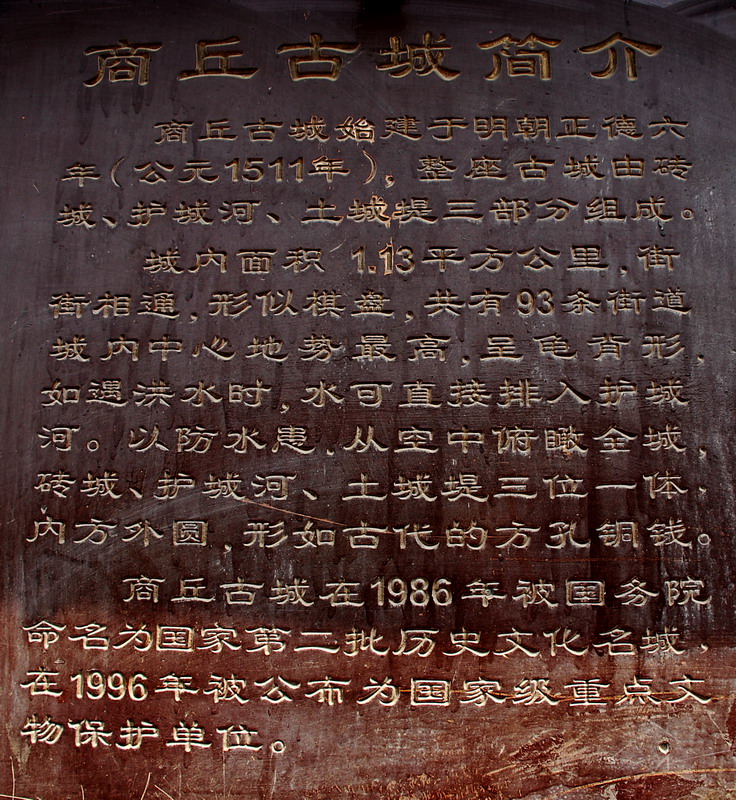 商丘古城简介
商丘古城始建于明朝正德六
年(公元1511年),整座古城由砖
城、护城河、土城堤三部分组成。
城内面积 1.13平方公里,街
街相通,形似棋盘,共有93条街道
城内中心地势最高,呈龟背形,
如遇洪水时,水可直接排入护城
河。以防水患,从空中俯瞰全城,
砖城、护城河、土城堤三位一体,
内方外圆,形如古代的方孔铜钱。
商丘古城在1986年被国务院
命名为国家第二批历史文化名城,
在1996年被公布为国家级重点文
物保护单位。